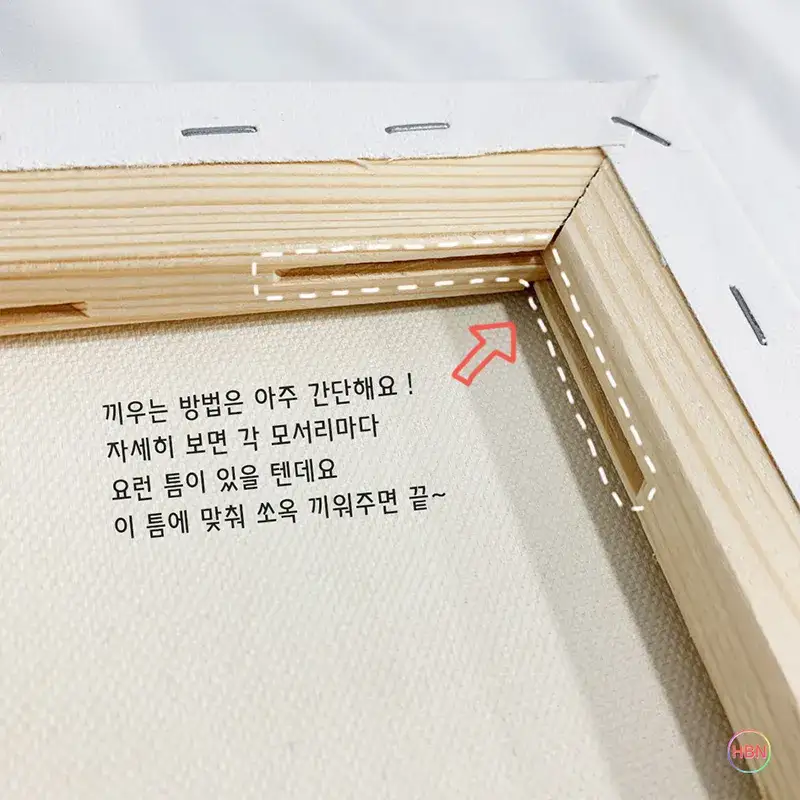 끼우는 방법은 아주 간단해요 !
자세히 보면 각 모서리마다
요런 틈이 있을 텐데요
이 틈에 맞춰 쏘옥 끼워주면 끝~
HBN